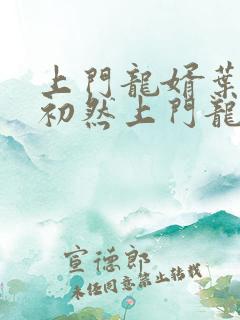 上門龍婿葉
初然上門龍
宣德郎
未经同意禁止转载